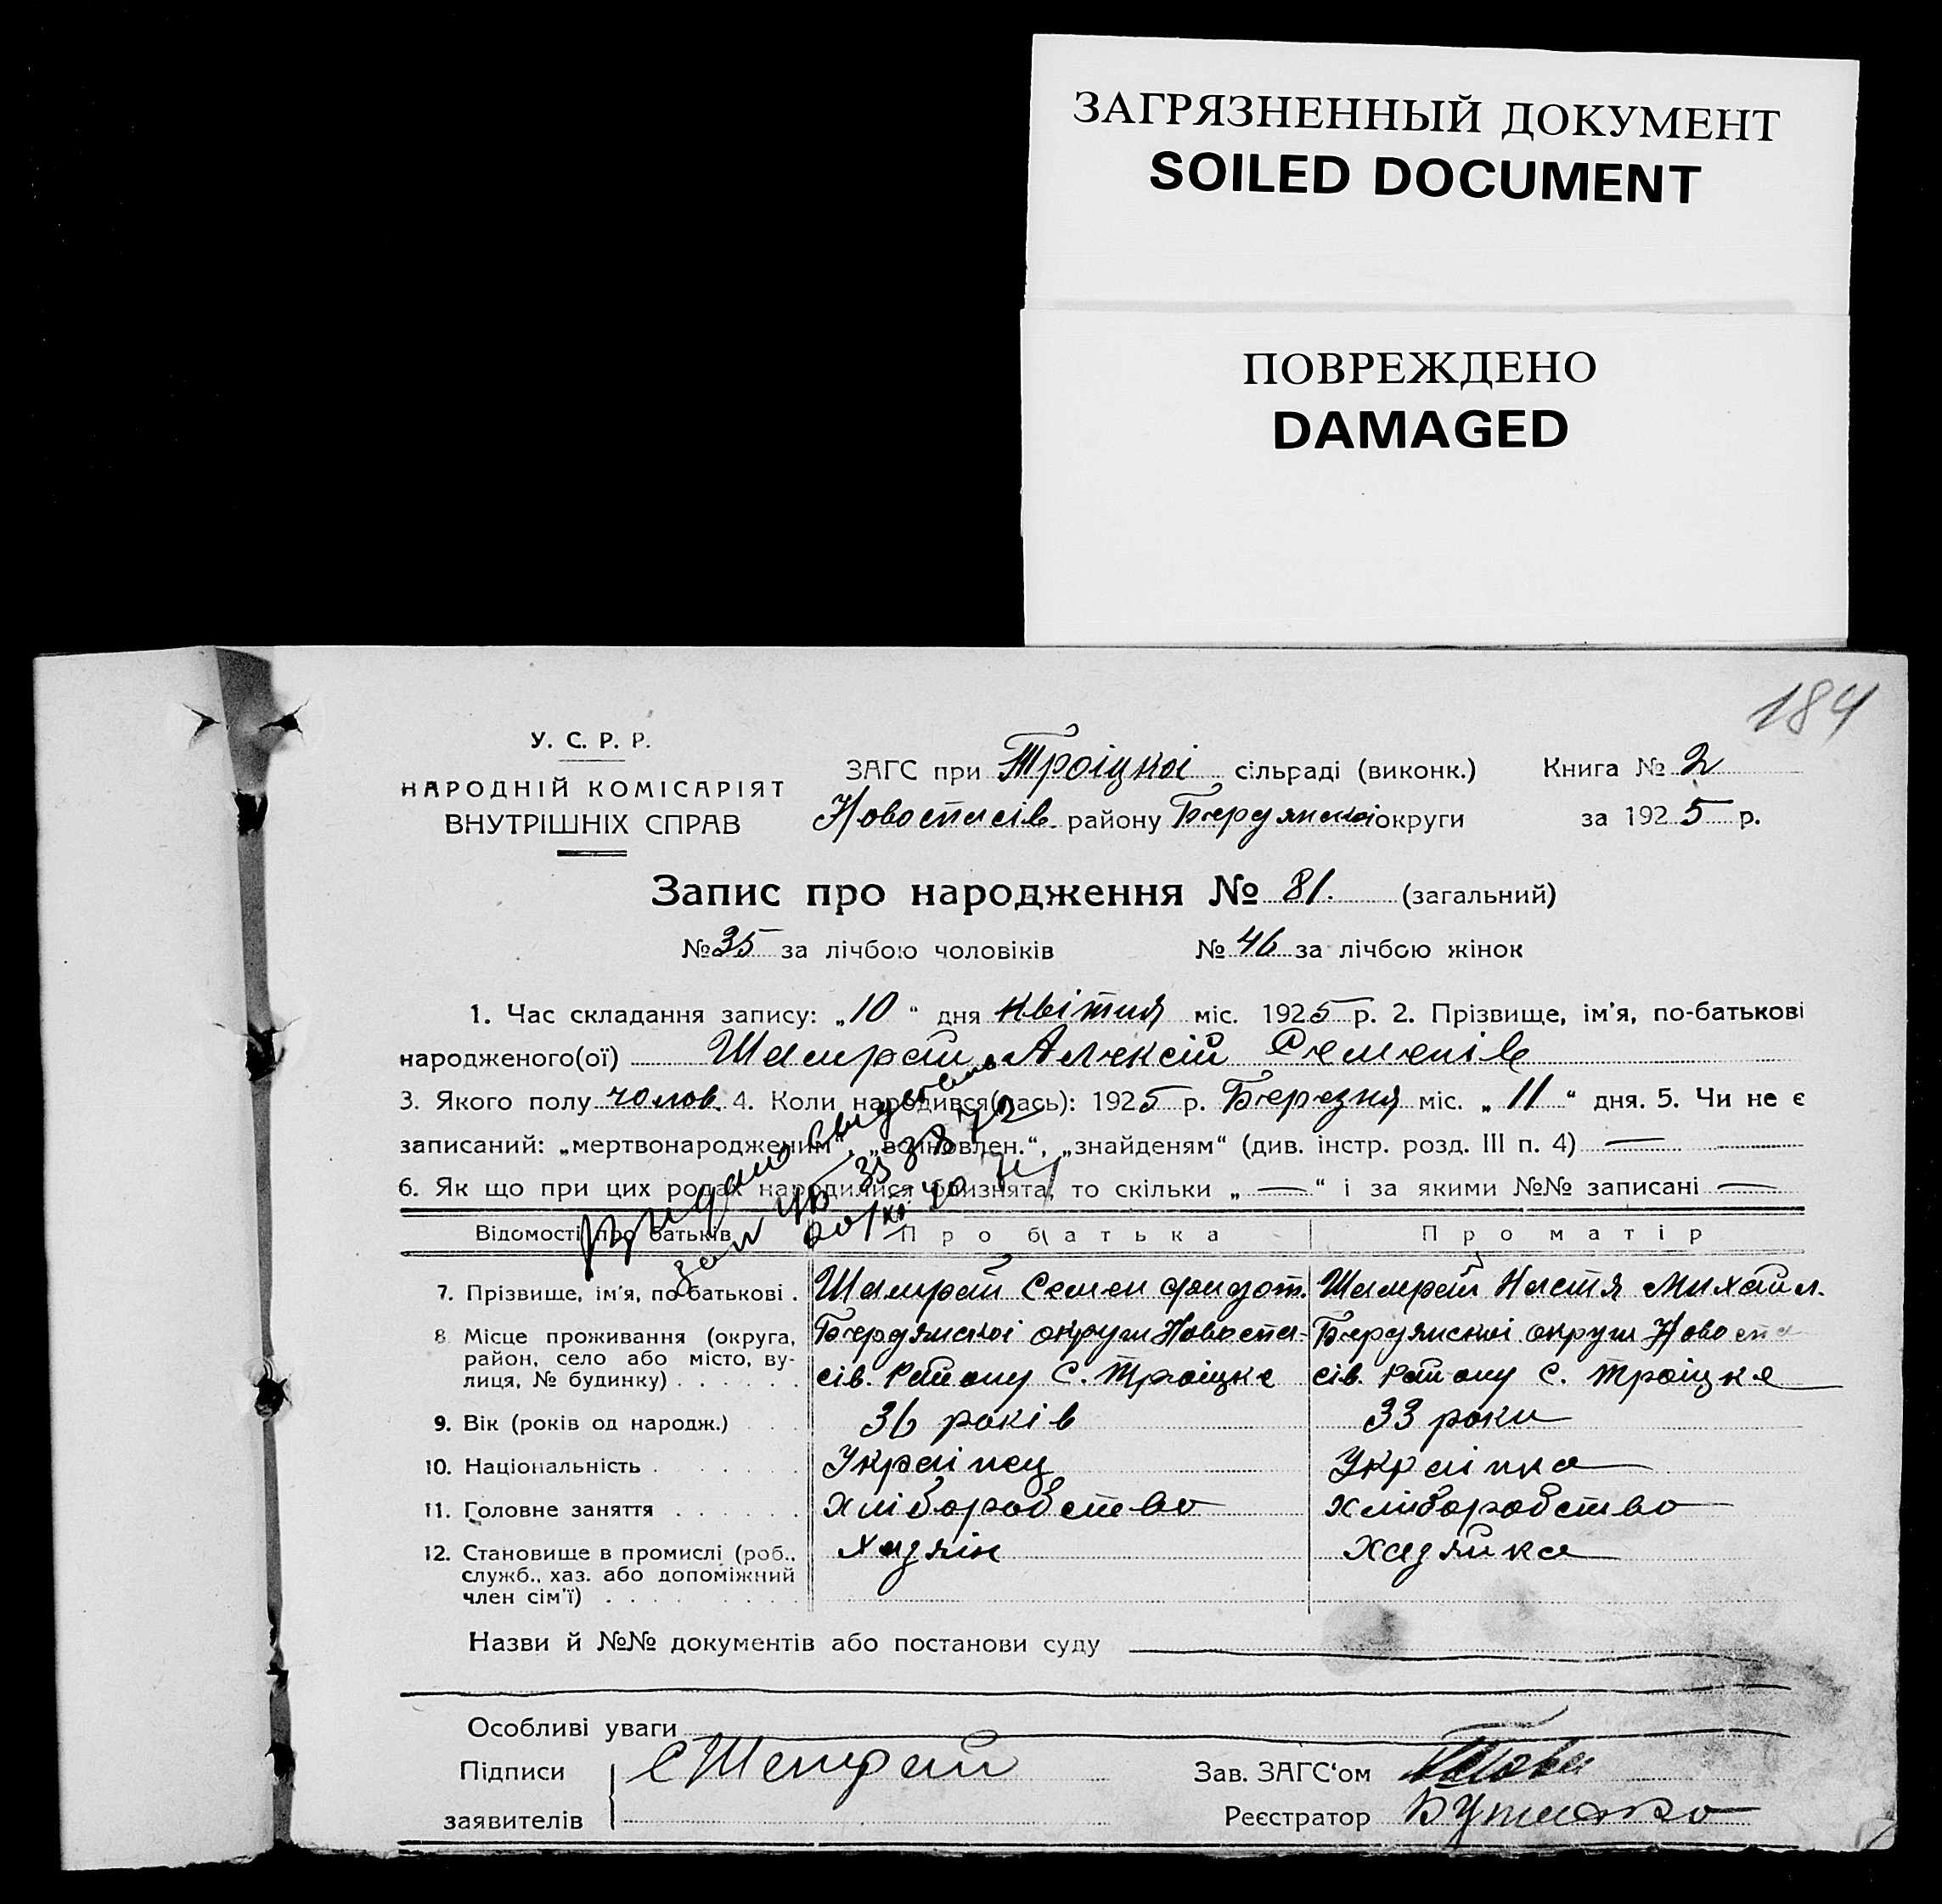 ЗАГРЯЗНЕННЫЙ ДОКУМЕНТ
SOILED DOCUMENT
ПОВРЕЖДЕНО
DAMAGED
184
У. С. Р. Р.
НАРОДНІЙ КОМІСАРІЯТ
ВНУТРІШНІХ СПРАВ
ЗАГС при Троіцкої сільраді (виконк.) Книга № 2
Новоспасів. району Бердянскої округи за 1925 р.
Запис про народження № 81. (загальний)
№ 35 за лічбою чоловіків № 46 за лічбою жінок
1. Час складання запису: „10“ дня квітня міс. 1925 р. 2. Прізвище, ім'я, по-батькові
народженого(ої) Шамрай Алексій Семенів
3. Якого полу чолов. 4. Коли народився(лась): 1925 р. Березня міс. „11“ дня. 5. Чи не є
записаний: „мертвонародженим“, „всиновлен.“, „знайденям“ (див. інстр. розд. III п. 4) —
6. Як що при цих родах народилися близнята, то скільки „—“ і за якими №№ записані —
Відомості про батьків Про батька Про матір
7. Прізвище, ім'я, по батькові . Шамрай Семен Федот. Шамрай Настя Михайл.
8 Місце проживання (округа, район, село або місто, вулиця, № будинку) Бердянскої округи Новоспа- Бердянскої округи Новоспа
сів. Району С. Троіцке сів. Району С. Троіцке
9. Вік (років од народж.) 36 років 33 роки
10. Національність Українец Українка
11. Головне заняття хліборобство хліборобство
12. Становище в промислі (роб., Хазяін Хазяйка
служб., хаз. або допоміжний
член сім'ї)
Назви й №№ документів або постанови суду
Особливі уваги
Підписи С Шамрай Зав. ЗАГС'ом
заявителів Реєстратор